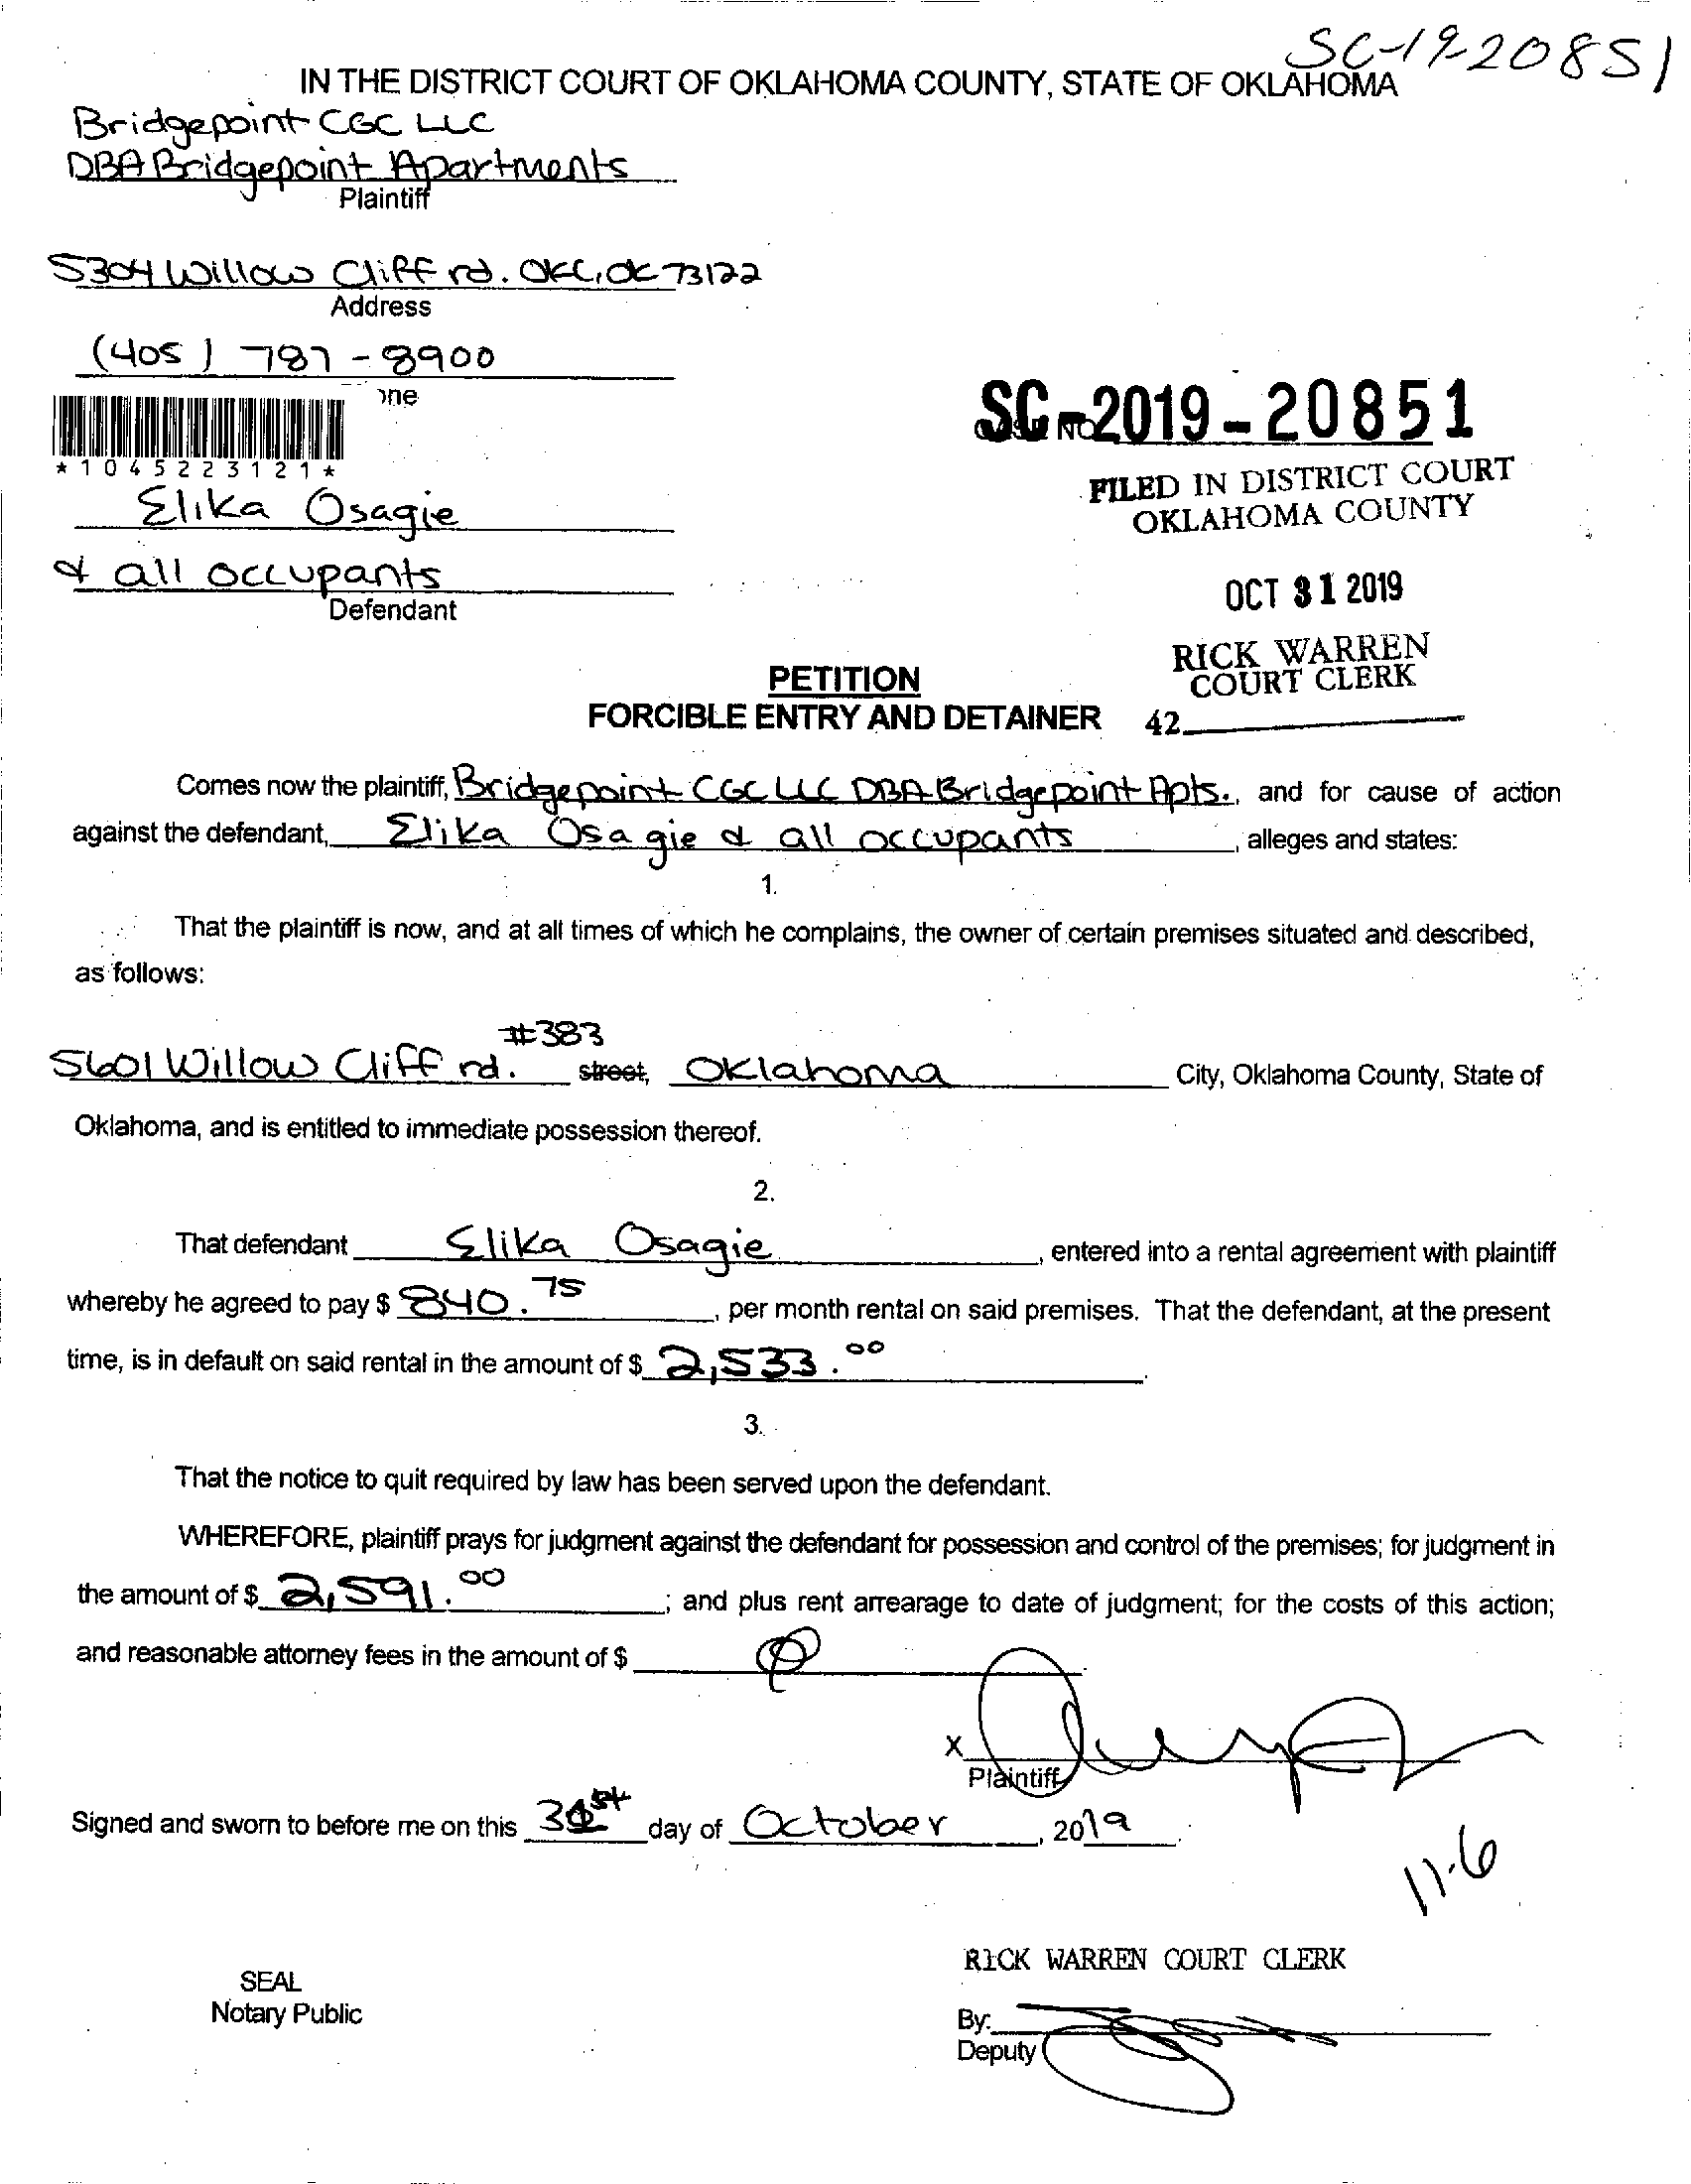 SC-19-20851
IN THE DISTRICT COURT OF OKLAHOMA COUNTY, STATE OF OKLAHOMA
Bridgepoint CGC LLC
DBA Bridgepoint Apartments
Plaintiff
5304 Willow Cliff rd. OKC, OK 73122
Address
(405) 787-8900
one
*1045223121*
SC-2019-20851
FILED IN DISTRICT COURT
OKLAHOMA COUNTY
Elika Osagie
& all occupants
Defendant
OCT 31 2019
RICK WARREN
COURT CLERK
42
PETITION
FORCIBLE ENTRY AND DETAINER
Comes now the plaintiff, Bridgepoint CGC LLC DBA Bridgepoint Apts., and for cause of action
against the defendant, Elika Osagie & all occupants, alleges and states:
1.
That the plaintiff is now, and at all times of which he complains, the owner of certain premises situated and described,
as follows:
#383
5601 Willow Cliff rd. street, Oklahoma City, Oklahoma County, State of
Oklahoma, and is entitled to immediate possession thereof.
2.
That defendant Elika Osagie, entered into a rental agreement with plaintiff
whereby he agreed to pay $ 840.75, per month rental on said premises. That the defendant, at the present
time, is in default on said rental in the amount of $ 2,533.00.
3.
That the notice to quit required by law has been served upon the defendant.
WHEREFORE, plaintiff prays for judgment against the defendant for possession and control of the premises; for judgment in
the amount of $ 2,591.00; and plus rent arrearage to date of judgment; for the costs of this action;
and reasonable attorney fees in the amount of $
X
Plaintiff
Signed and sworn to before me on this 31st day of October, 2019
11-6
RICK WARREN COURT CLERK
SEAL
Notary Public
By:
Deputy